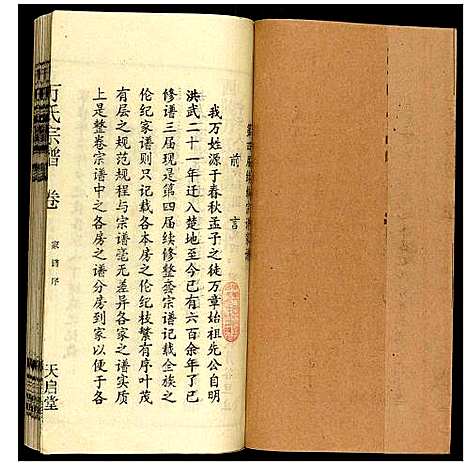 前言
我万姓源于春秋孟子之徒万章始祖先公自明
洪武二十一年迁入楚地至今已有六百余年了已
修谱三届现是第四届续修整套宗谱记载全族之
伦纪家谱则只记载各本房之伦纪枝繁有序叶茂
有层之规范规程与宗谱毫无差异各家之谱实质
上是整卷宗谱中之各房之谱分房到家以便于各
万氏宗谱
卷
家谱序
天启堂